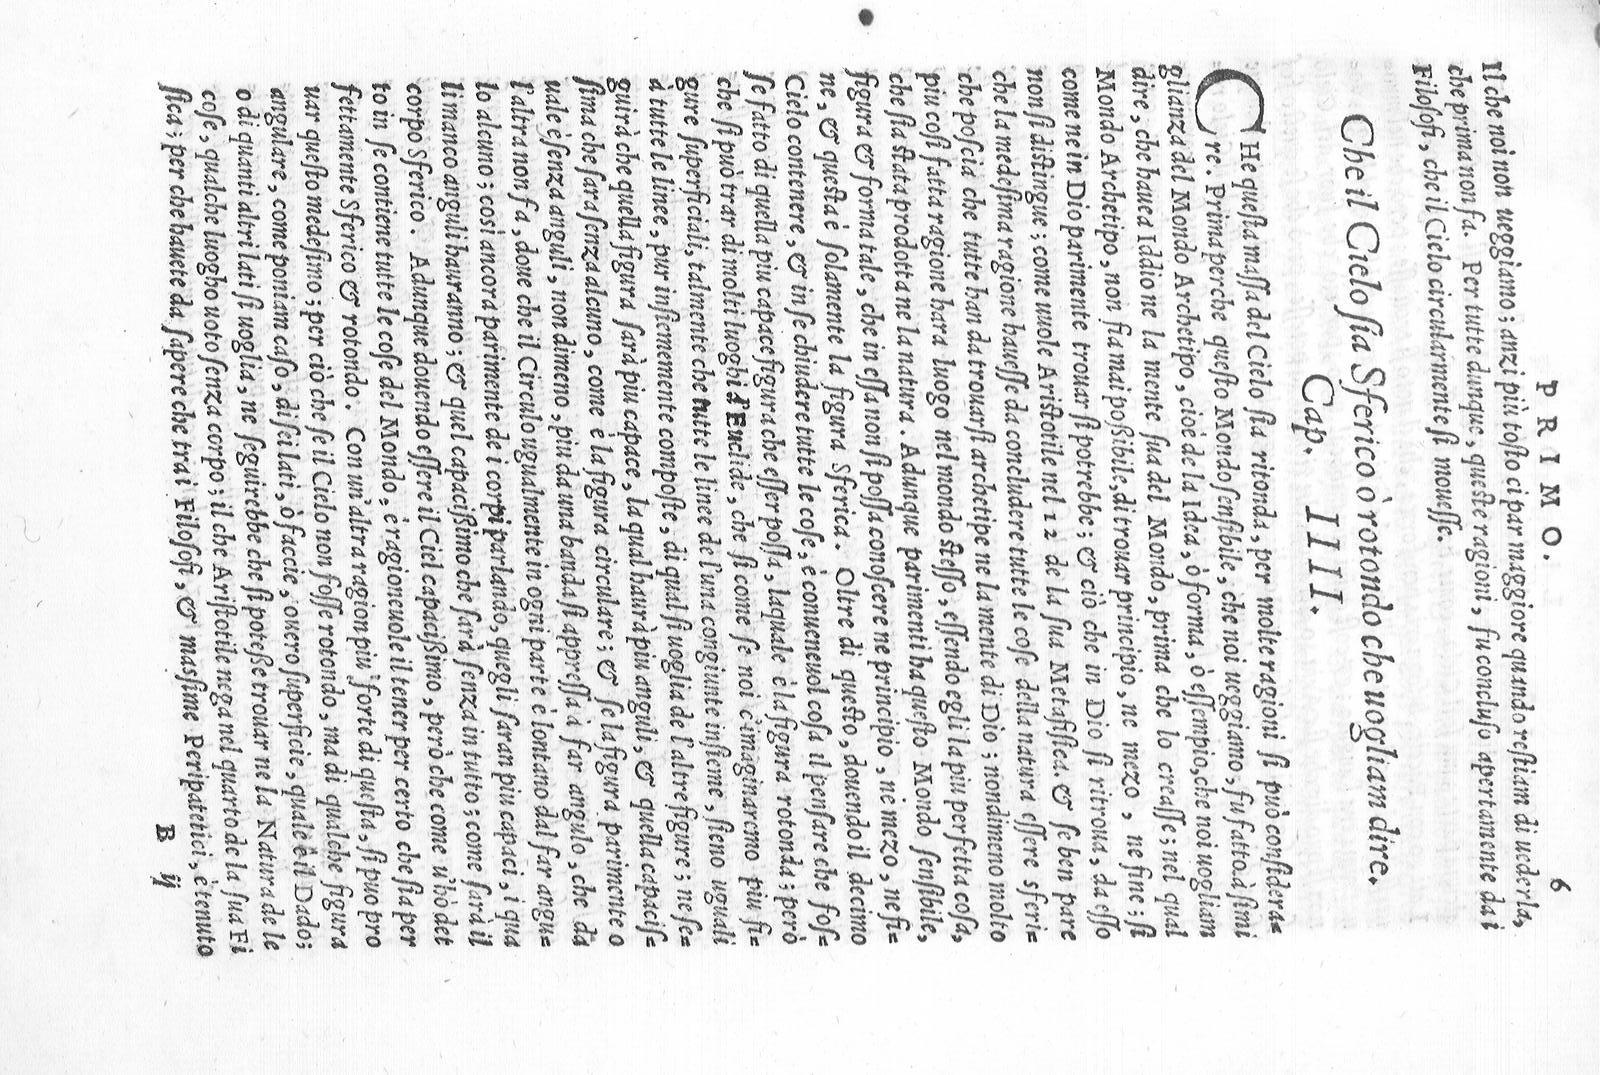 PRIMO. 6
Il che noi non ueggiamo; anzi più toſto ci par maggiore quando reſtiam di uederla,
che prima non fa. Per tutte dunque, queſte ragioni, fu concluſo apertamente da i
Filoſofi, che il Cielo circularmente ſi moueſſe.
Che il Cielo ſia Sferico ò rotondo che uogliam dire.
Cap. IIII.
CHe queſta maſſa del Cielo ſia ritonda, per molte ragioni ſi può conſidera=
re. Prima perche queſto Mondo ſenſibile, che noi ueggiamo, fu fatto à ſimi
glianza del Mondo Archetipo, cioè de la Idea, ò forma, ò eſſempio, che noi uogliam
dire, che hauea Iddio ne la mente ſua del Mondo, prima che lo creaſſe; nel qual
Mondo Archetipo, non fia mai poßibile, di trouar principio, ne mezo, ne fine; ſi
come ne in Dio parimente trouar ſi potrebbe; & ciò che in Dio ſi ritroua, da eſſo
non ſi diſtingue; come uuole Ariſtotile nel 12 de la ſua Metafiſica. & ſe ben pare
che la medeſima ragione haueſſe da concludere tutte le coſe della natura eſſere sferi=
che poſcia che tutte han da trouarſi archetipe ne la mente di Dio; nondimeno molto
piu coſi fatta ragione hara luogo nel mondo ſteſſo, eſſendo egli la piu perfetta coſa,
che ſia ſtata prodotta ne la natura Adunque parimenti ha queſto Mondo ſenſibile,
figura & forma tale, che in eſſa non ſi poſſa conoſcere ne principio, ne mezo, ne fi=
ne, & queſta è ſolamente la figura Sferica. Oltre di queſto, douendo il decimo
Cielo contenere, & in ſe chiudere tutte le coſe, è conueneuol coſa il penſare che foſ=
ſe fatto di quella piu capace figura che eſſer poſſa, laquale è la figura rotonda; però
che ſi può trar di molti luoghi d'Euclide, che ſi come ſe noi c'imaginaremo piu fi=
gure ſuperficiali, talmente che tutte le linee de l'una congiunte inſieme, ſieno uguali
à tutte le linee, pur inſiememente compoſte, di qual ſi uoglia de l'altre figure; ne ſe=
guirà che quella figura ſarà piu capace, la qual haurà piu anguli, & quella capaciſ=
ſima che ſara ſenza alcuno, come è la figura circulare; & ſe la figura parimente o
uale è ſenza anguli, non dimeno, piu da una banda ſi appreſſa à far angulo, che da
l'altra non fa, doue che il Circulo ugualmente in ogni parte è lontano dal far angu=
lo alcuno; così ancora parimente de i corpi parlando, quegli ſaran piu capaci, i qua
li manco anguli hauranno; & quel capacißimo che ſarà ſenza in tutto; come ſarà il
corpo Sferico. Adunque douendo eſſere il Ciel capacißimo, però che come u'hò det
to in ſe contiene tutte le coſe del Mondo, è ragioneuole il tener per certo che ſia per
fettamente Sferico & rotondo. Con un'altra ragion più forte di queſta, ſi puo pro
uar queſto medeſimo; per ciò che ſe il Cielo non foſſe rotondo, ma di qualche figura
angulare, come poniam caſo, di ſei lati, ò faccie, ouero ſuperficie, quale è il Dado;
o di quanti altri lati ſi uoglia, ne ſeguirebbe che ſi poteße trouar ne la Natura de le
coſe, qualche luogho uoto ſenza corpo; il che Ariſtotile nega nel quarto de la ſua Fi
ſica; per che hauete da ſapere che tra i Filoſofi, & maſsime Peripatetici, è tenuto
B ij